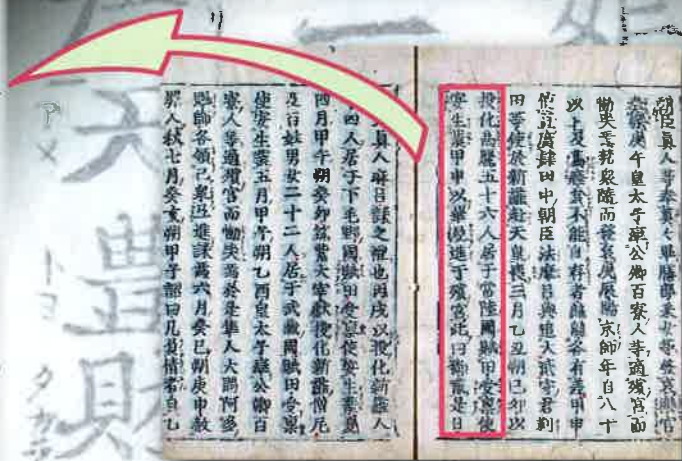 朝臣眞人等奉奠々畢膳部采女等發哀樂官
奏樂庚午皇太子率公卿百寮人等適殯宮而
慟哭焉梵衆隨而發哀庚辰賜京師年自八十
以上及篤癃貧不能自存者絁綿各有差甲申
使直廣肆田中朝臣法麿與追大貳守君苅
田等使於新羅赴天皇喪三月乙丑朔己卯以
投化高麗五十六人居于常陸國賦田受稟使
安生業甲申以華縵進于殯宮此曰御蔭是日
眞人麻呂誄之禮也丙戌以投化新羅人
十四人居于下毛野國賦田受稟使安生業夏
四月甲午朔癸卯筑紫大宰獻投化新羅僧尼
及百姓男女二十二人居于武藏國賦田受稟
使安生業五月甲子朔乙酉皇太子率公卿百
寮人等適殯宮而慟哭焉於是隼人大隅阿多
魁帥各領己衆互進誄焉六月癸巳朔庚申赦
罪人秋七月癸亥朔甲子詔曰凡負債者自乙
天豊財
アメ
トヨ
タカラ